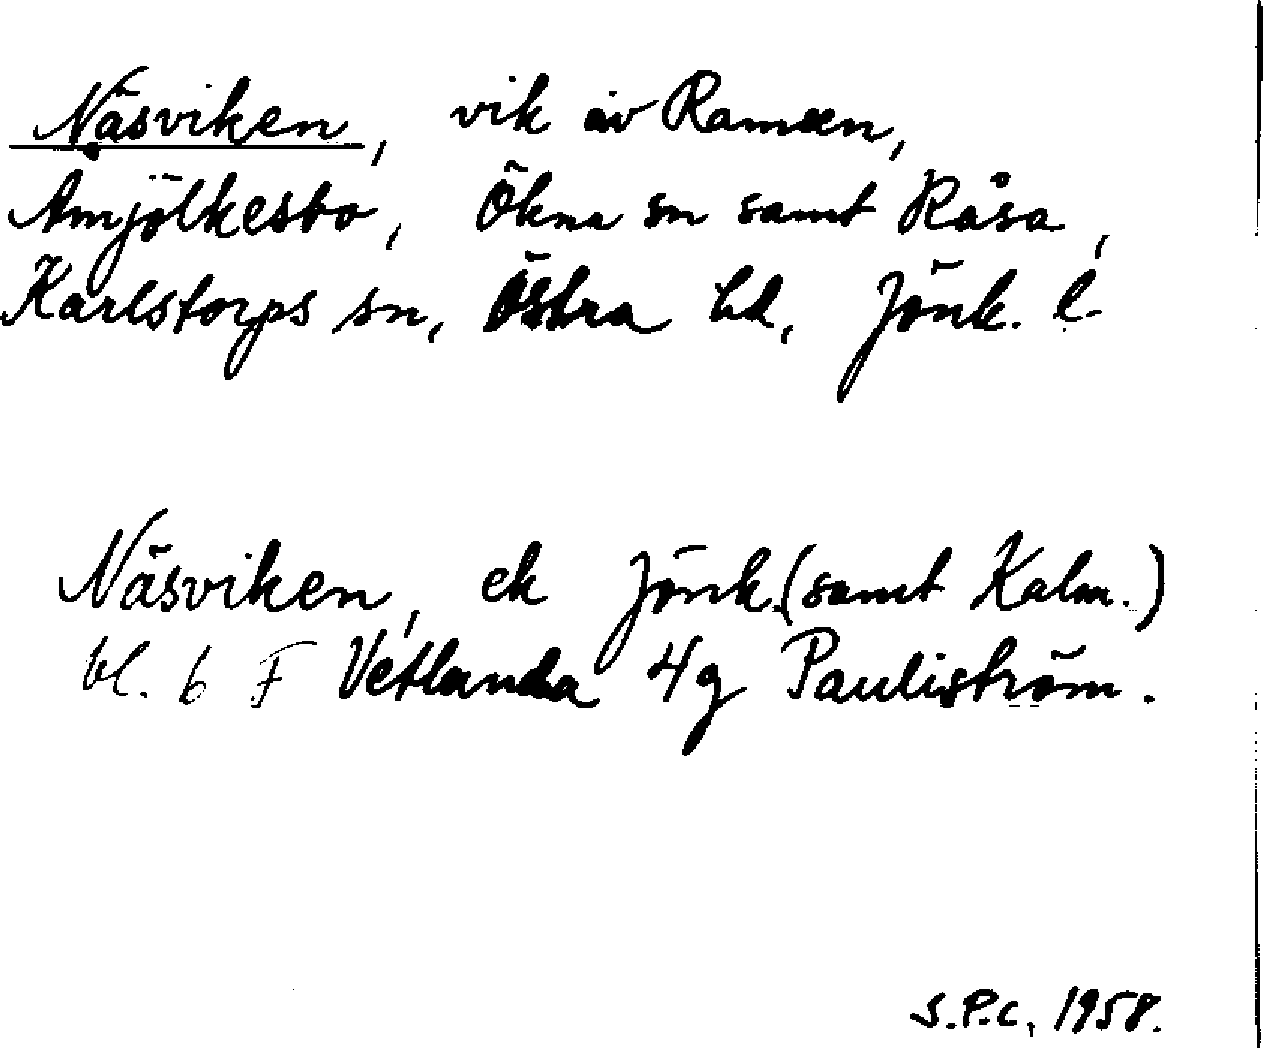 Näsviken, vik av Ramsen,
Amjölkesbo, Ökna sn samt Råsa,
Karlstorps sn, Östra hd, Jönk. l.
Näsviken, ek Jönk. (samt Kalm.)
bl. 6 F Vetlanda 4g Pauliström.
S.P.C, 1958.